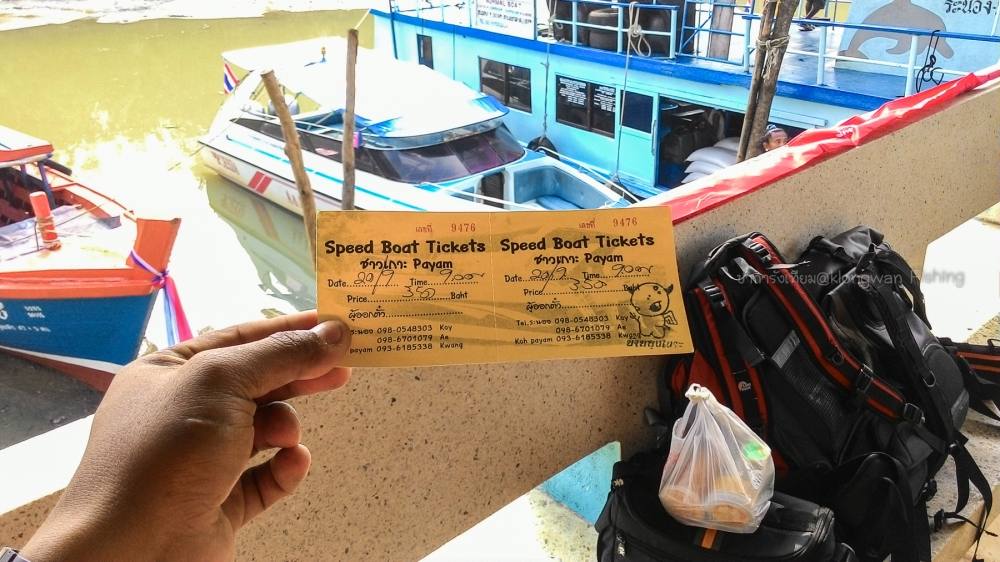 NORMAL BOAT
ระนอง-
เลขที่ 9476
Speed Boat Tickets
ชาวเกาะ Payam
Date 20/9 Time 9.00
Price 350 Baht
ผู้ออกตั๋ว
Tel.ระนอง 098-0548303 Koy
098-6701079 Ae
payam 093-6185338 Kwang
เลขที่ 9476
Speed Boat Tickets
ชาวเกาะ Payam
Date 20/9 Time 9.00
Price 350 Baht
ผู้ออกตั๋ว
Tel.ระนอง 098-0548303 Koy
098-6701079 Ae
Koh payam 093-6185338 Kwang